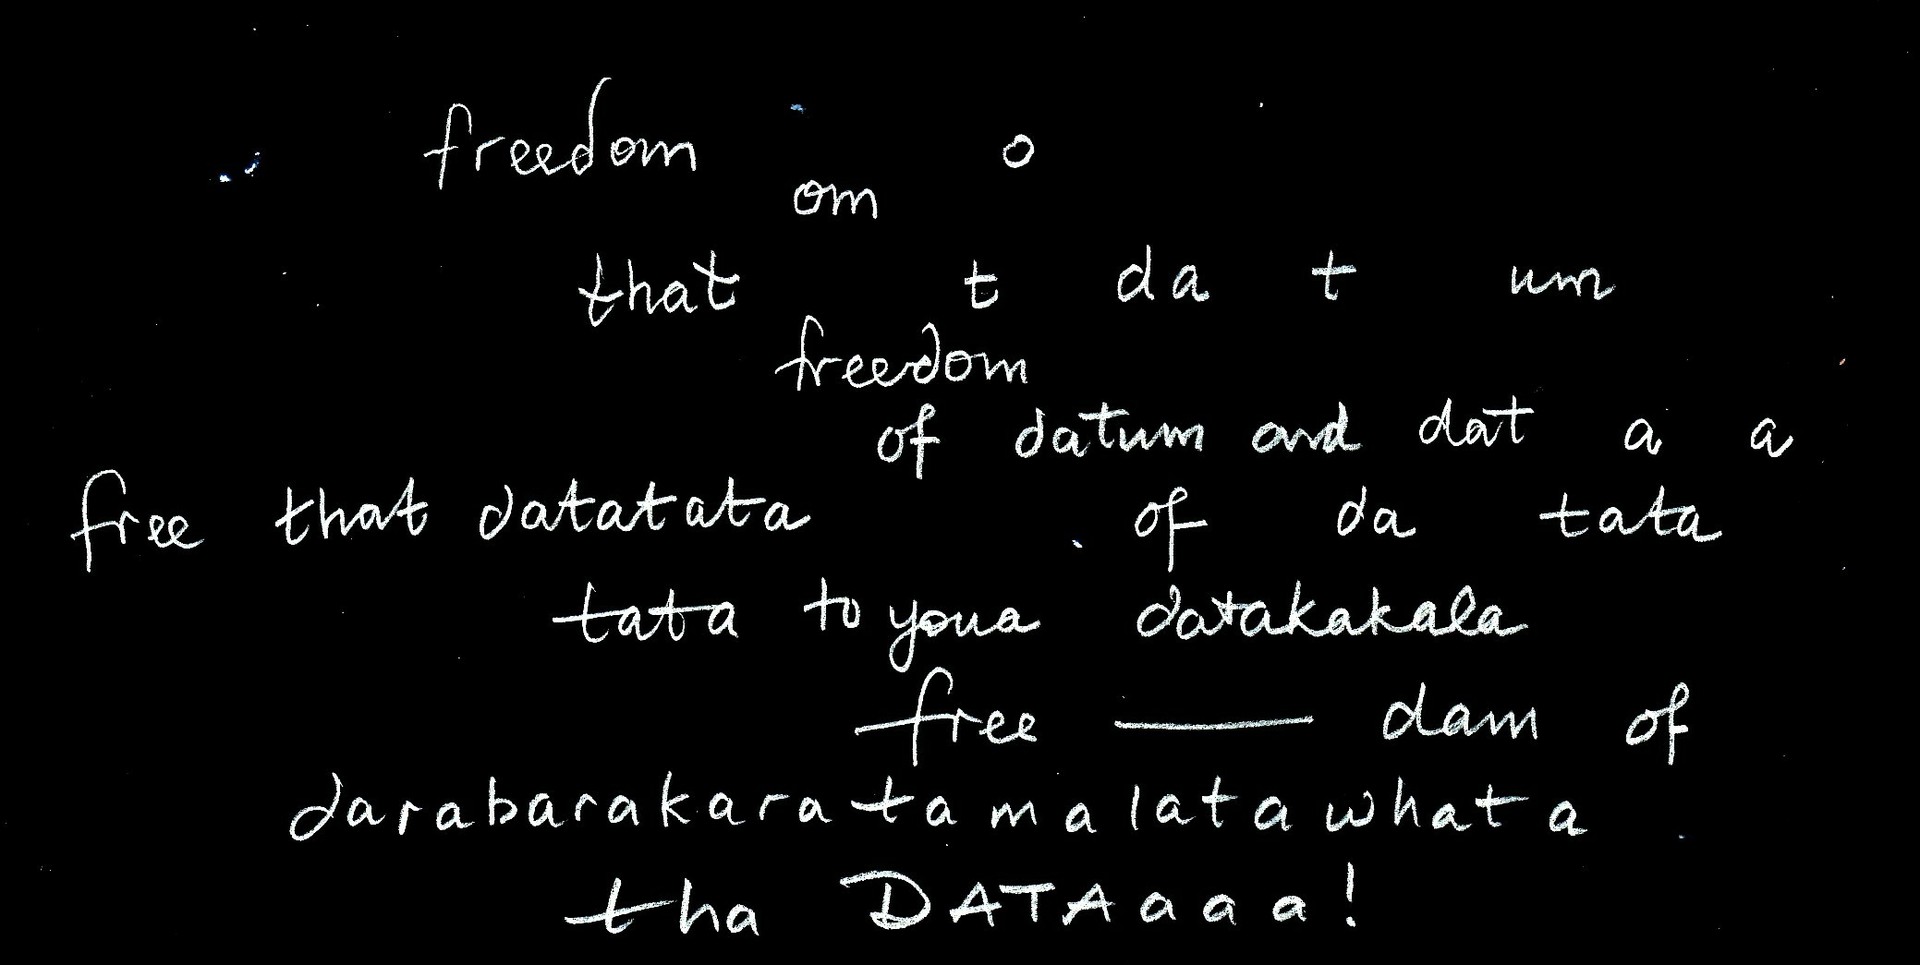 freedom o
om
that t da t um
freedom
of datum and dat a a
free that datatata of da tata
tata to youa datakakala
free — dam of
darabarakaratamalatawhata
tha DATAaaa!